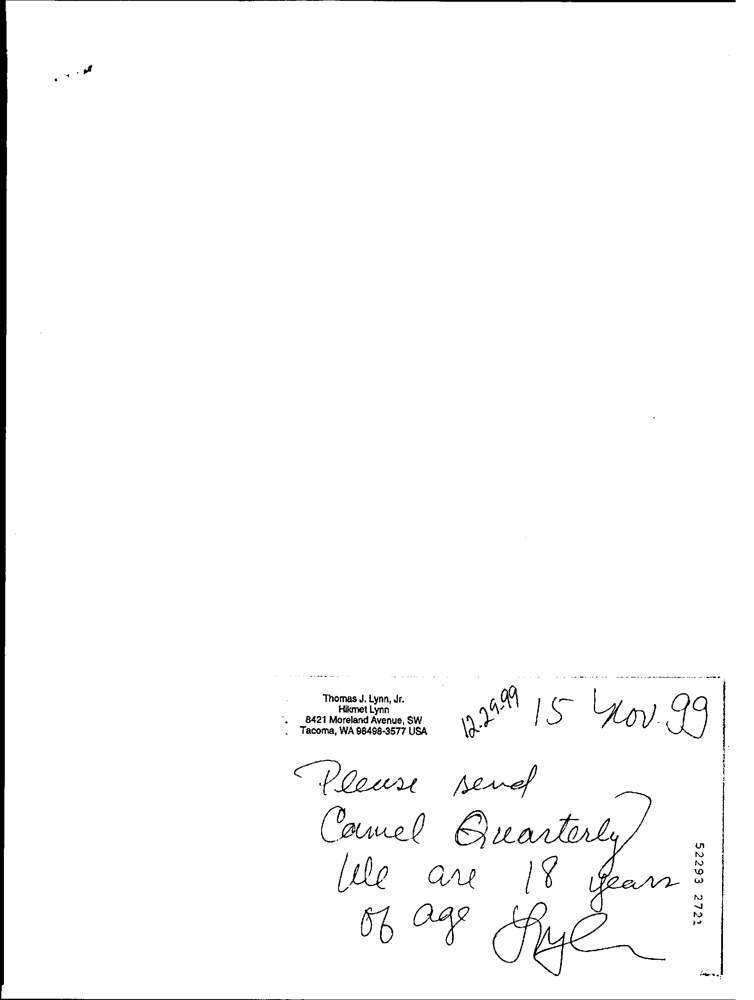 Thomas J. Lynn, Jr.
Hikmet Lynn
8421 Moreland Avenue, SW
Tacoma, WA 98498-3577 USA
12.29.99
15 Nov. 99
Please send
Camel Quarterly
We are 18 years
of age
52293 2721